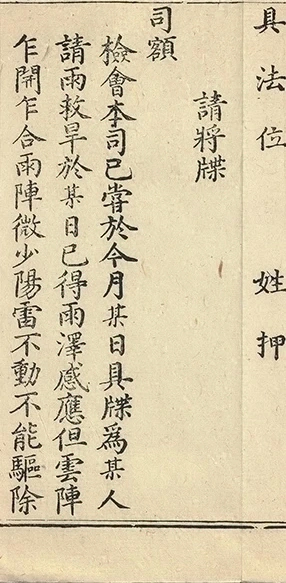 具法位　姓押
請將牒
司額
檢會本司已嘗於今月某日具牒為某人
請雨救旱於某日已得雨澤感應但雲陣
乍開乍合雨陣微少陽雷不動不能驅除